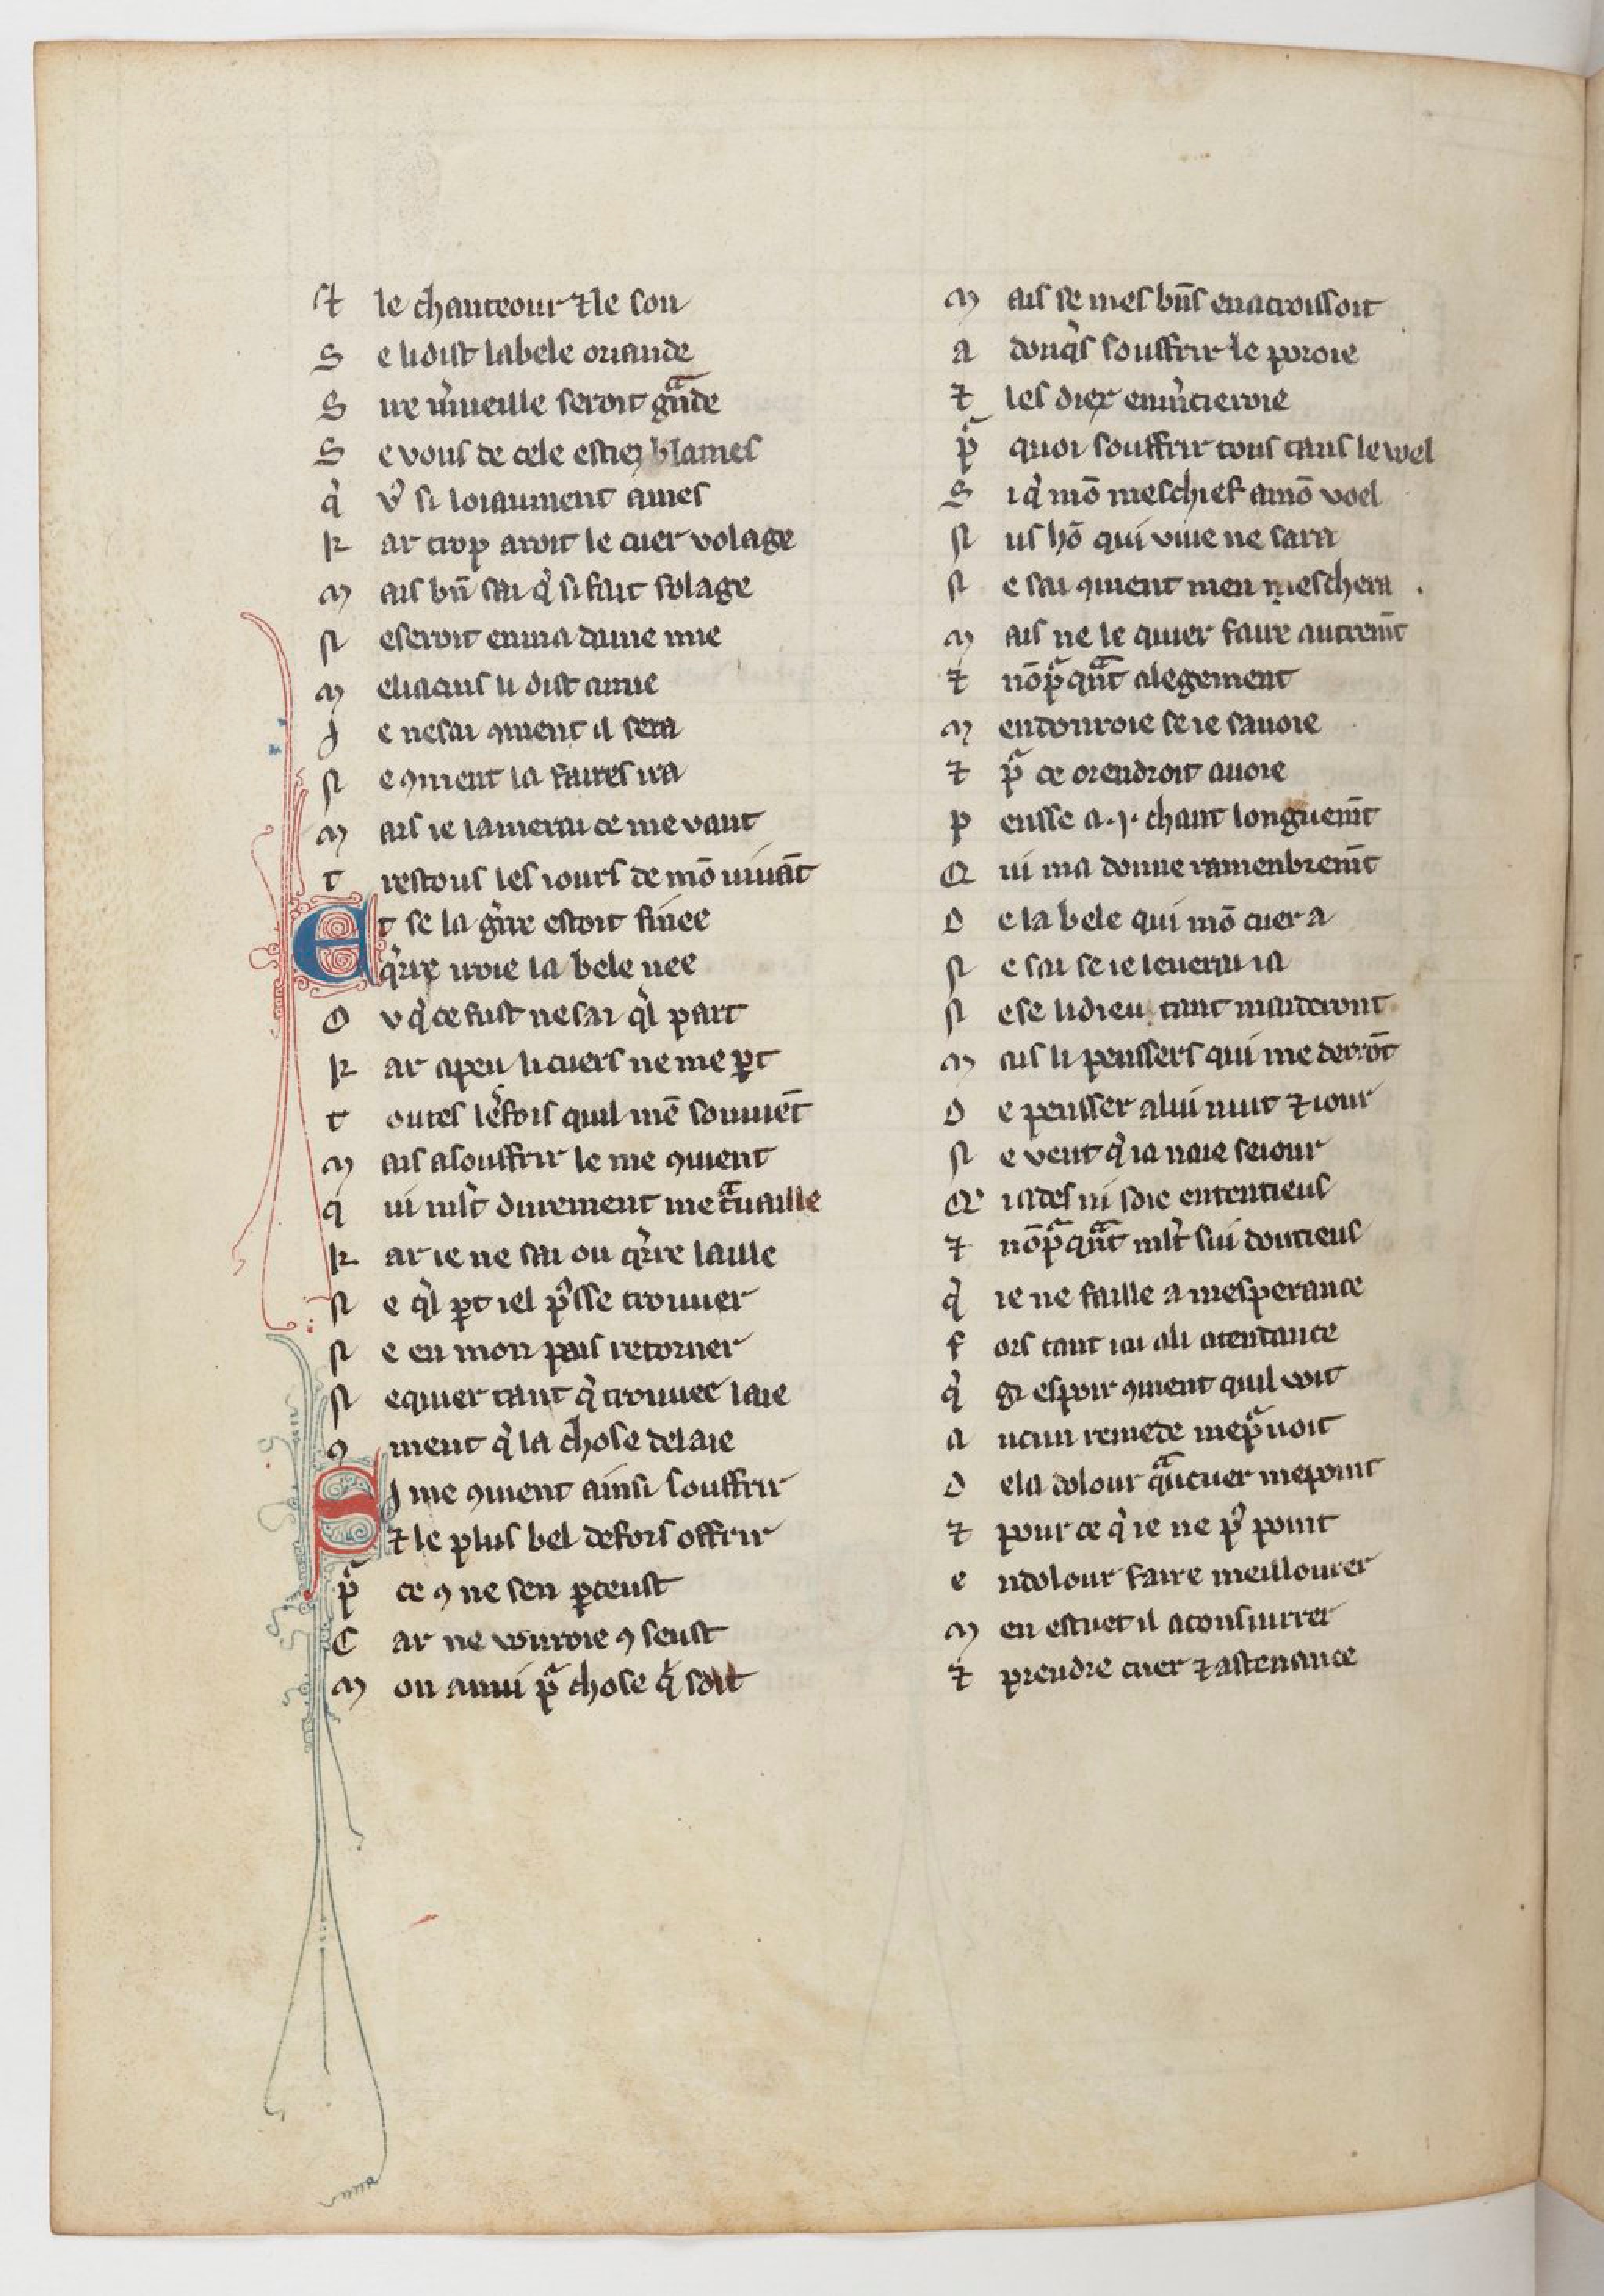 Et le chanteour ⁊ le son
S e li dist la bele oriande
S ire mͥueille seroit gᵃnde
S e vous de cele estiez blames
q̉ vͦ si loiaument ames
K ar trop aroit le cuer volage
M ais bn̄ sai q̉ si fait folage
N e seroit en ma dame mie
M eliacins li dist amie
J e ne sai ꝯment il sera
N e ꝯment la faires ira
M ais ie lamerai ce me vant
T restous les iours de mō viuāt
Et se la gͥre estoit finee
q̉rre iroie la bele nee
O v q̉ ce fust ne sai q̉l part
K ar a peu li cuers ne me ꝑt
T outes les fois quil mē souuiēt
M ais a souffrir le me ꝯuient
q ui ml̄t durement me tᵃuaille
K ar ie ne sai ou q̉rre laille
N e q̉l ꝑt iel pͥsse trouuer
N e en mon pais retorner
N e quier tant q̉ trouuee laie
ꝯ ment q̉ la chose delaie
SJ me ꝯuient ainsi souffrir
⁊ le plus bel defors offrir
pᵃ ce ꝯ ne sen ꝑceust
C ar ne vourroie ꝯ seust
M on anui pᵃ chose q̉ soit
M ais se mes bn̄s en acroissoit
A donq̉s souffrir le poroie
⁊ les diex en mͥcieroie
pᵃ quoi souffrir tous tans le wel
S i q̉ mō meschief a mō voel
N us hō qui viue ne sara
N e sai ꝯment men meschera .
M ais ne le quier faire autremt̄
⁊ nōpᵃqᵃnt alegement
M en donroie se ie sauoie
⁊ pᵃ ce orendroit auoie
P ensse a .j. chant longuemt̄
Q ui ma donne ramenbremt̄
D e la bele qui mō cuer a
N e sai se ie leuerai ia
N e se li dieu tant maideront
M ais li penssers qui me derrōt
D e pensser a lui nuit ⁊ iour
N e veut q̉ ia naie seiour
Q' iades ni soie ententieus
⁊ nōpᵃqᵃnt ml̄t sui doutieus
q̉ ie ne faille a mesperance
F ors tant iai a li atendance
q̉ gi espoir ꝯment quil voit
A ucun remede me pᵃuoit
D e la dolour qᵃu cuer me point
⁊ pour ce q̉ ie ne pͥ point
E n dolour faire meillourer
M en estuet il a consiurrer
⁊ prendre cuer ⁊ astenance